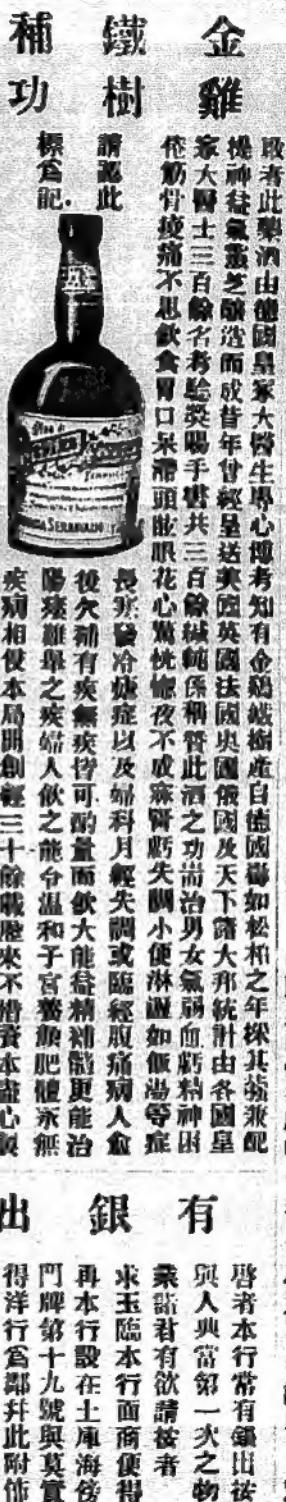 金雞
鐵樹
補功
請認此
標爲記
啟者此藥酒由德國皇家大醫生專心博考知有金鷄鐵樹產自德國壽如松柏之年採其蕊兼配
提神益氣靈芝釀造而成昔年曾經呈送美國英國法國奧國俄國及天下諸大邦統計由各國皇
家大醫士三百餘名考驗獎賜手書共三百餘緘純係稱贊此酒之功耑治男女氣弱血虧精神困
倦筋骨痠痛不思飲食胃口呆滯頭眩眼花心驚恍惚夜不成寐腎虧失調小便淋澀如飯湯等症
長寒發冷瘧症以及婦科月經失調或臨經腹痛病人愈
後欠補有疾無疾皆可酌量而飲大能益精補髓更能治
陽痿難舉之疾婦人飲之能令溫和子宮養顏肥體永無
疾病相侵本局開創經三十餘載歷來不惜資本盡心製
SERAVALLO
有銀出
啓者本行常有銀出按
與人典當第一次之物
業諸君有欲請按者
求玉臨本行面商便得
再本行設在土庫海傍
門牌第十九號與莫實
得洋行爲鄰幷此附佈